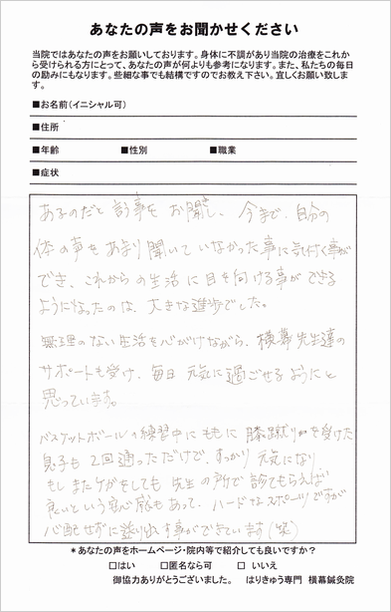 あなたの声をお聞かせください
当院ではあなたの声をお願いしております。身体に不調があり当院の治療をこれか
ら受けられる方にとって、あなたの声が何よりも参考になります。また、私たちの毎日
の励みにもなります。些細な事でも結構ですのでお教え下さい。宜しくお願い致しま
す。
■お名前(イニシャル可)
■住所
■年齢 ■性別 ■職業
■症状
あるのだと 事を お聞きし、今まで、自分の
体の声をあまり聞いていなかった事に気付く事が
でき、これからの生活に目を向ける事ができる
ようになったのは、大きな進歩でした。
無理のない生活を心がけながら、横幕先生達の
サポートも受け、毎日 元気に過ごせるようにと
思っています。
バスケットボールの練習中にももに膝蹴りを受けた
息子も 2回通っただけで、すっかり 元気になり
もし またケガをしても 先生の所で診てもらえば
良いという 感もあって、ハードなスポーツですが
心配せずに 事ができています(笑)
*あなたの声をホームページ・院内等で紹介しても良いですか?
□はい □匿名なら可 □いいえ
御協力ありがとうございました。 はりきゅう専門 横幕鍼灸院